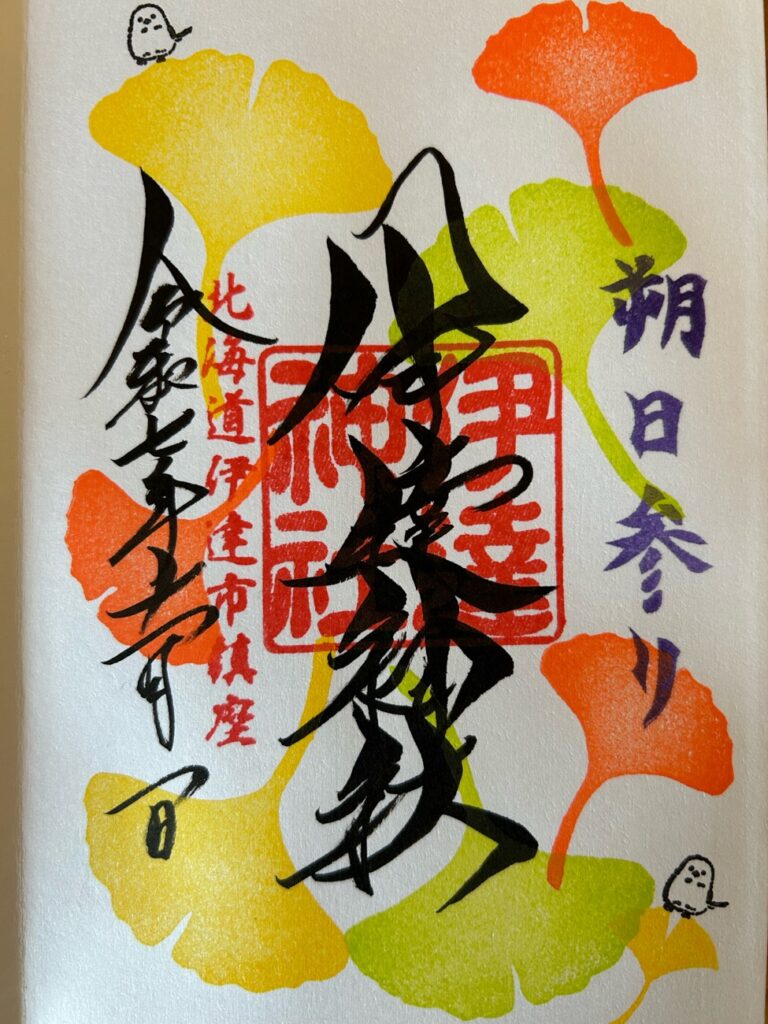 朔日参り
伊達神社
伊達神社
北海道伊達市鎮座
令和七年十一月一日